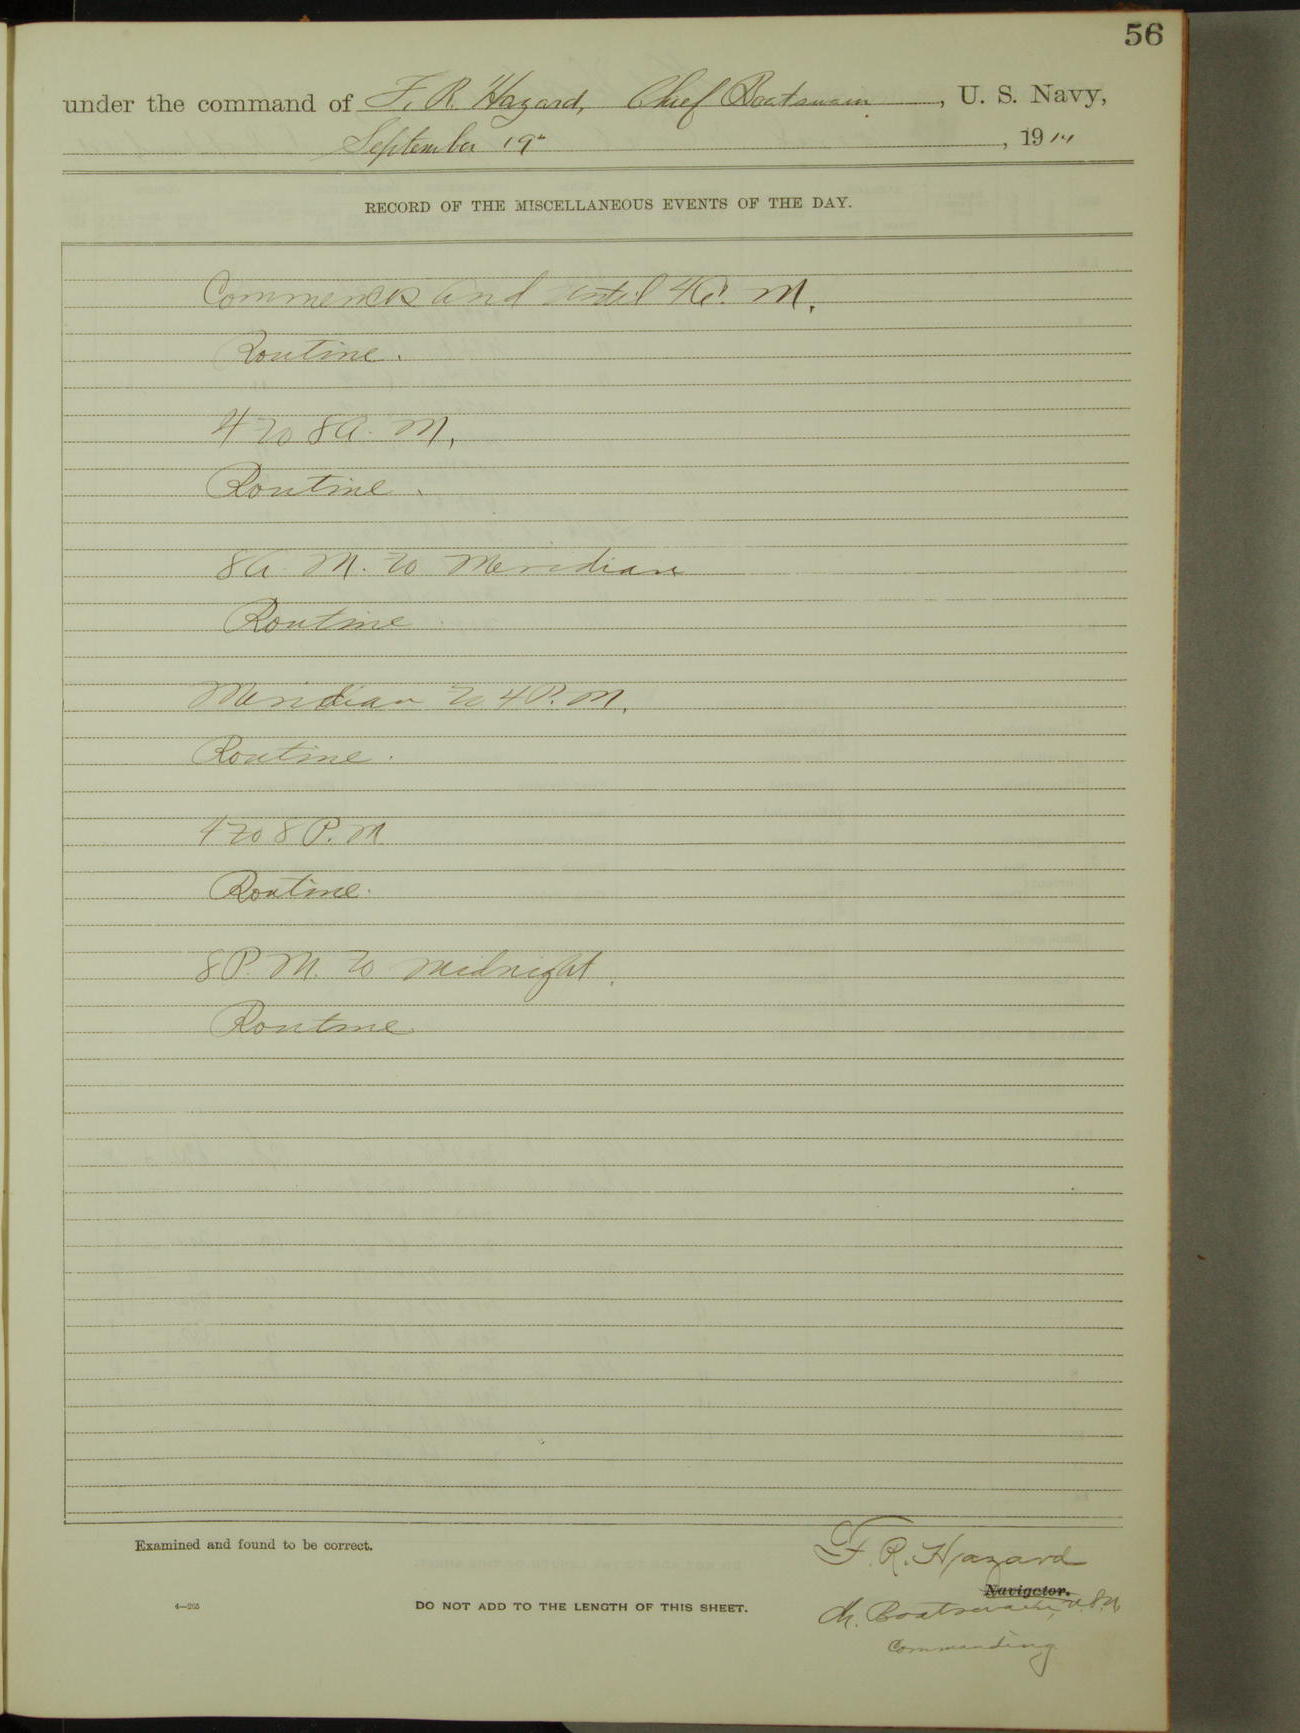 56
under the command of F. R. Hazard, Chief Boatswain, U. S. Navy,
September 19", 19
RECORD OF THE MISCELLANEOUS EVENTS OF THE DAY.
Commences and until 4 A. M.
Routine.
4 to 8 A. M.
Routine.
8 A. M. to Meridian
Routine
Meridian to 4 P. M.
Routine.
4 to 8 P. M
Routine.
8 P. M. to Midnight.
Routine
Examined and found to be correct.
F. R. Hazard
Navigator.
Ch. Boatswain, U.S.N.
Commanding.
4—265
DO NOT ADD TO THE LENGTH OF THIS SHEET.